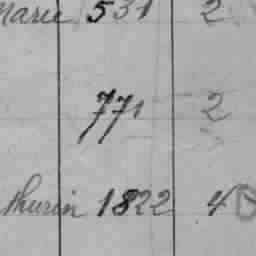 Marie 531 2
771 2
thurin 1822 4